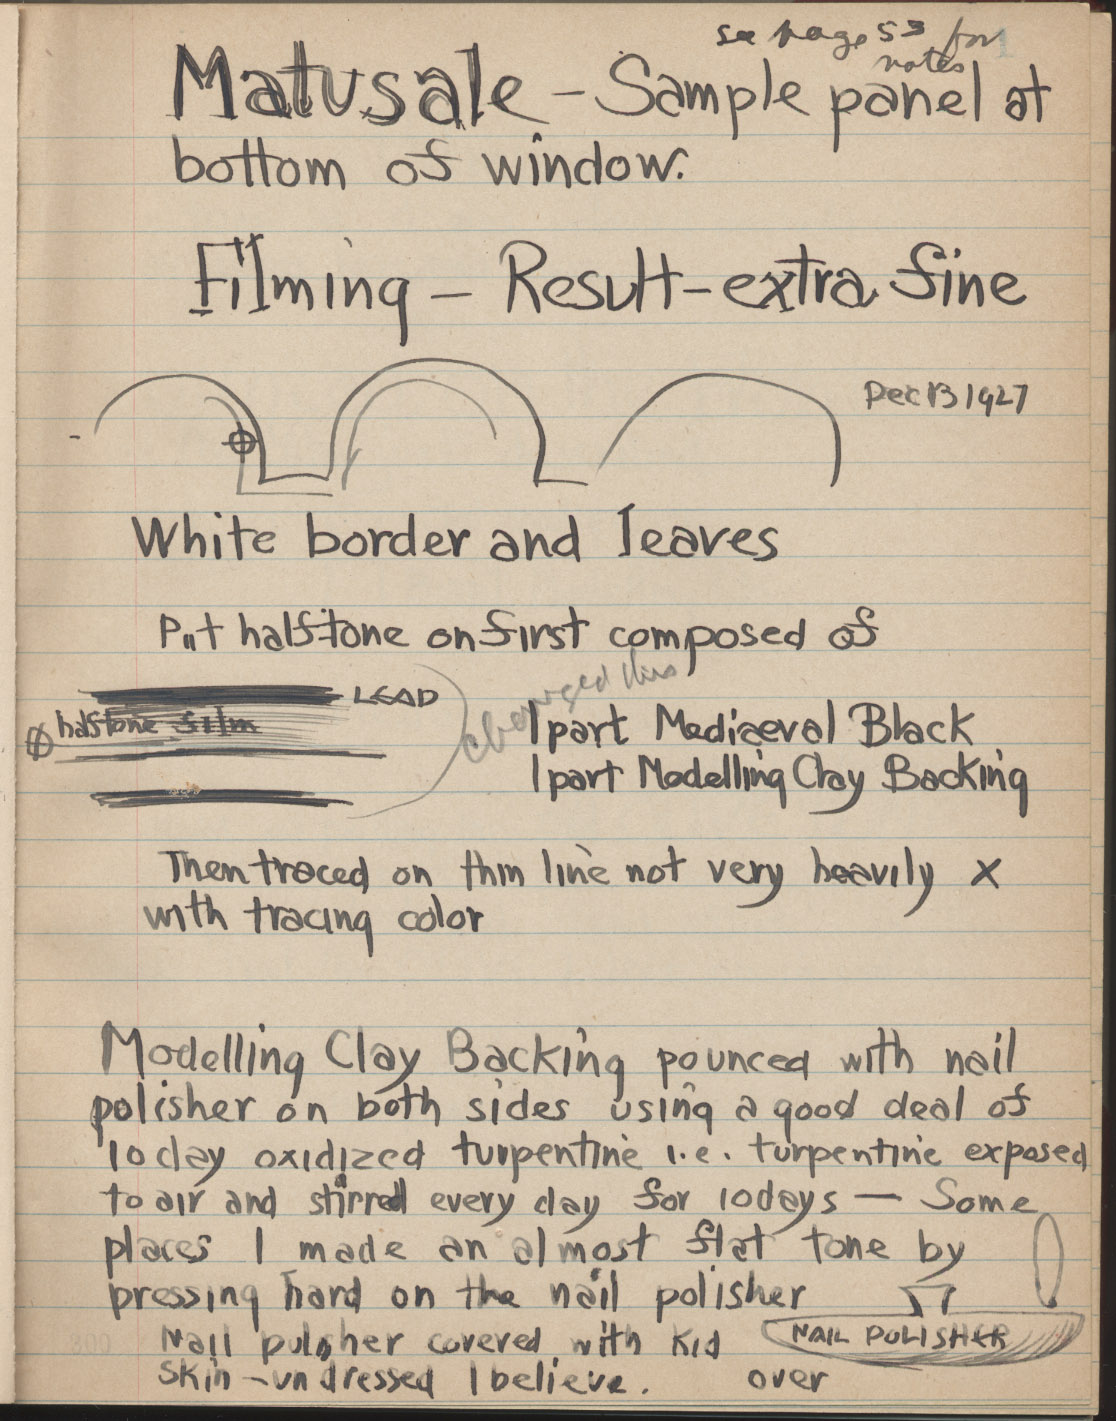 see page 53 for
notes
1
Matusale - Sample panel at
bottom of window.
Filming - Result - extra fine
Dec 13 1927
White border and leaves
Put halftone on first composed of
LEAD
halftone film
changed this
1 part Mediaeval Black
1 part Modelling Clay Backing
Then traced on thin line not very heavily x
with tracing color
Modelling Clay Backing pounced with nail
polisher on both sides using a good deal of
10 day oxidized turpentine i.e. turpentine exposed
to air and stirred every day for 10 days — Some
places I made an almost flat tone by
pressing hard on the nail polisher
Nail pulisher covered with Kid
NAIL POLISHER
Skin - undressed I believe. over